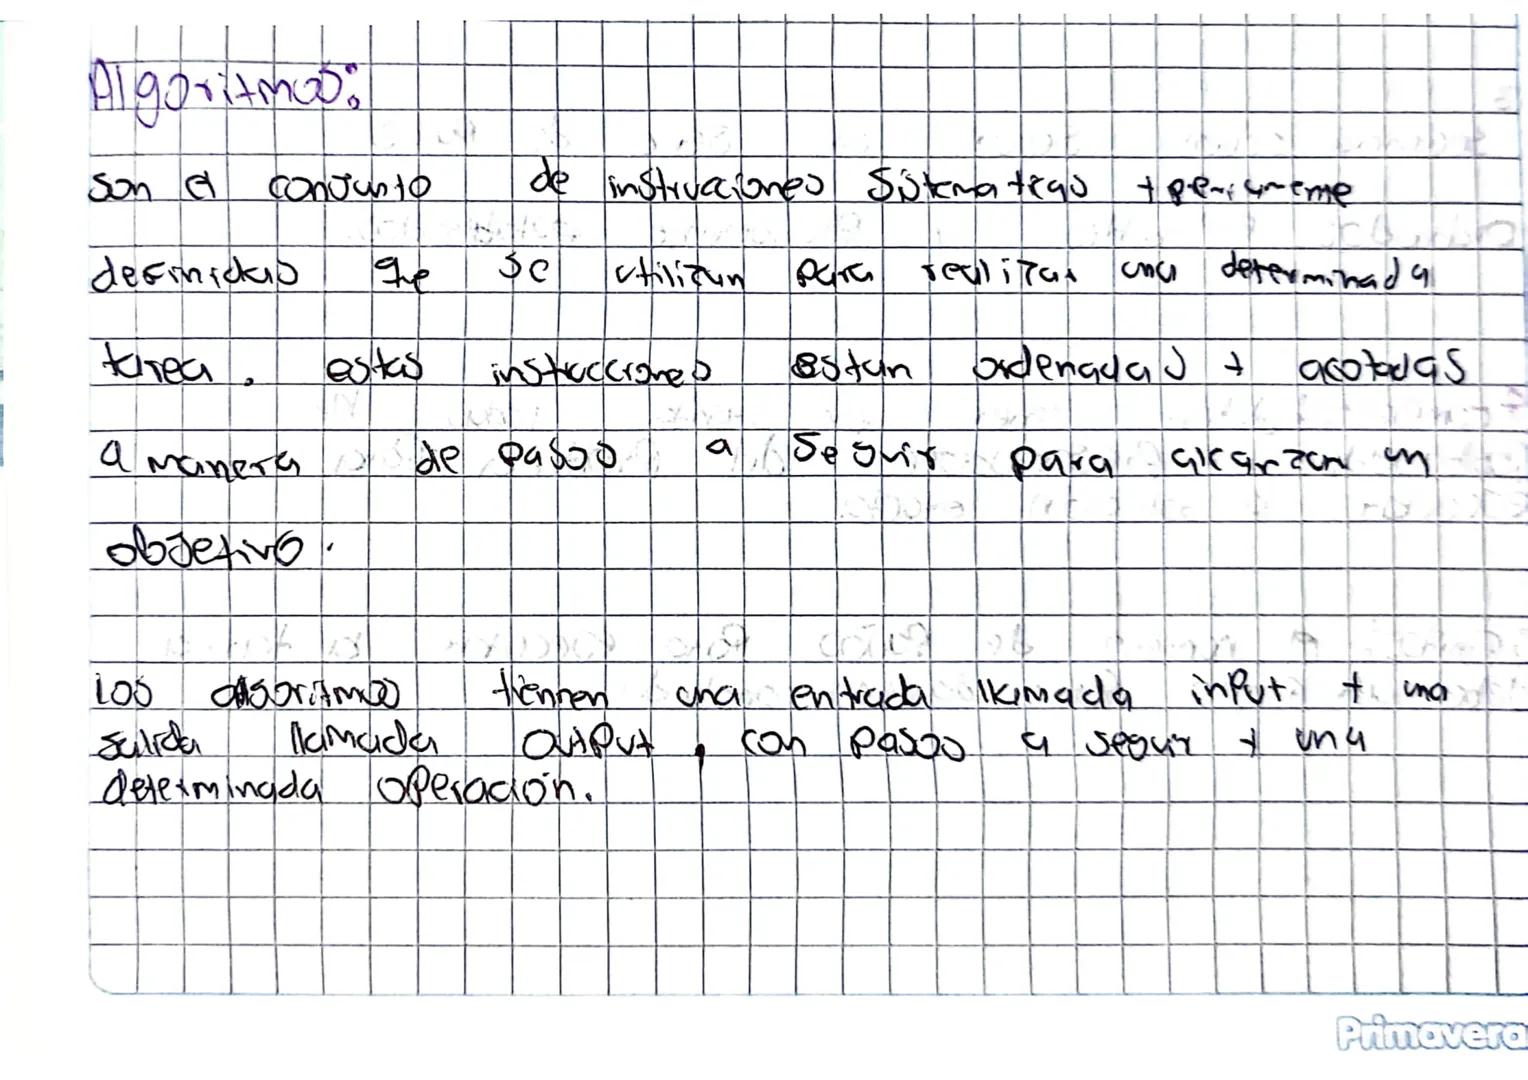 Algoritmos:
son el conjunto de instrucciones sistematicas +
definidas que se utilizan para realizar una determinada
tarea. estas instrucciones estan ordenadas + acotadas
a manera de pasos a seguir para alcanzar un
objetivo.
los algoritmos tiennen una entrada llamada input + una
salida llamada output, con pasos a seguir + una
determinada operación.
Primavera